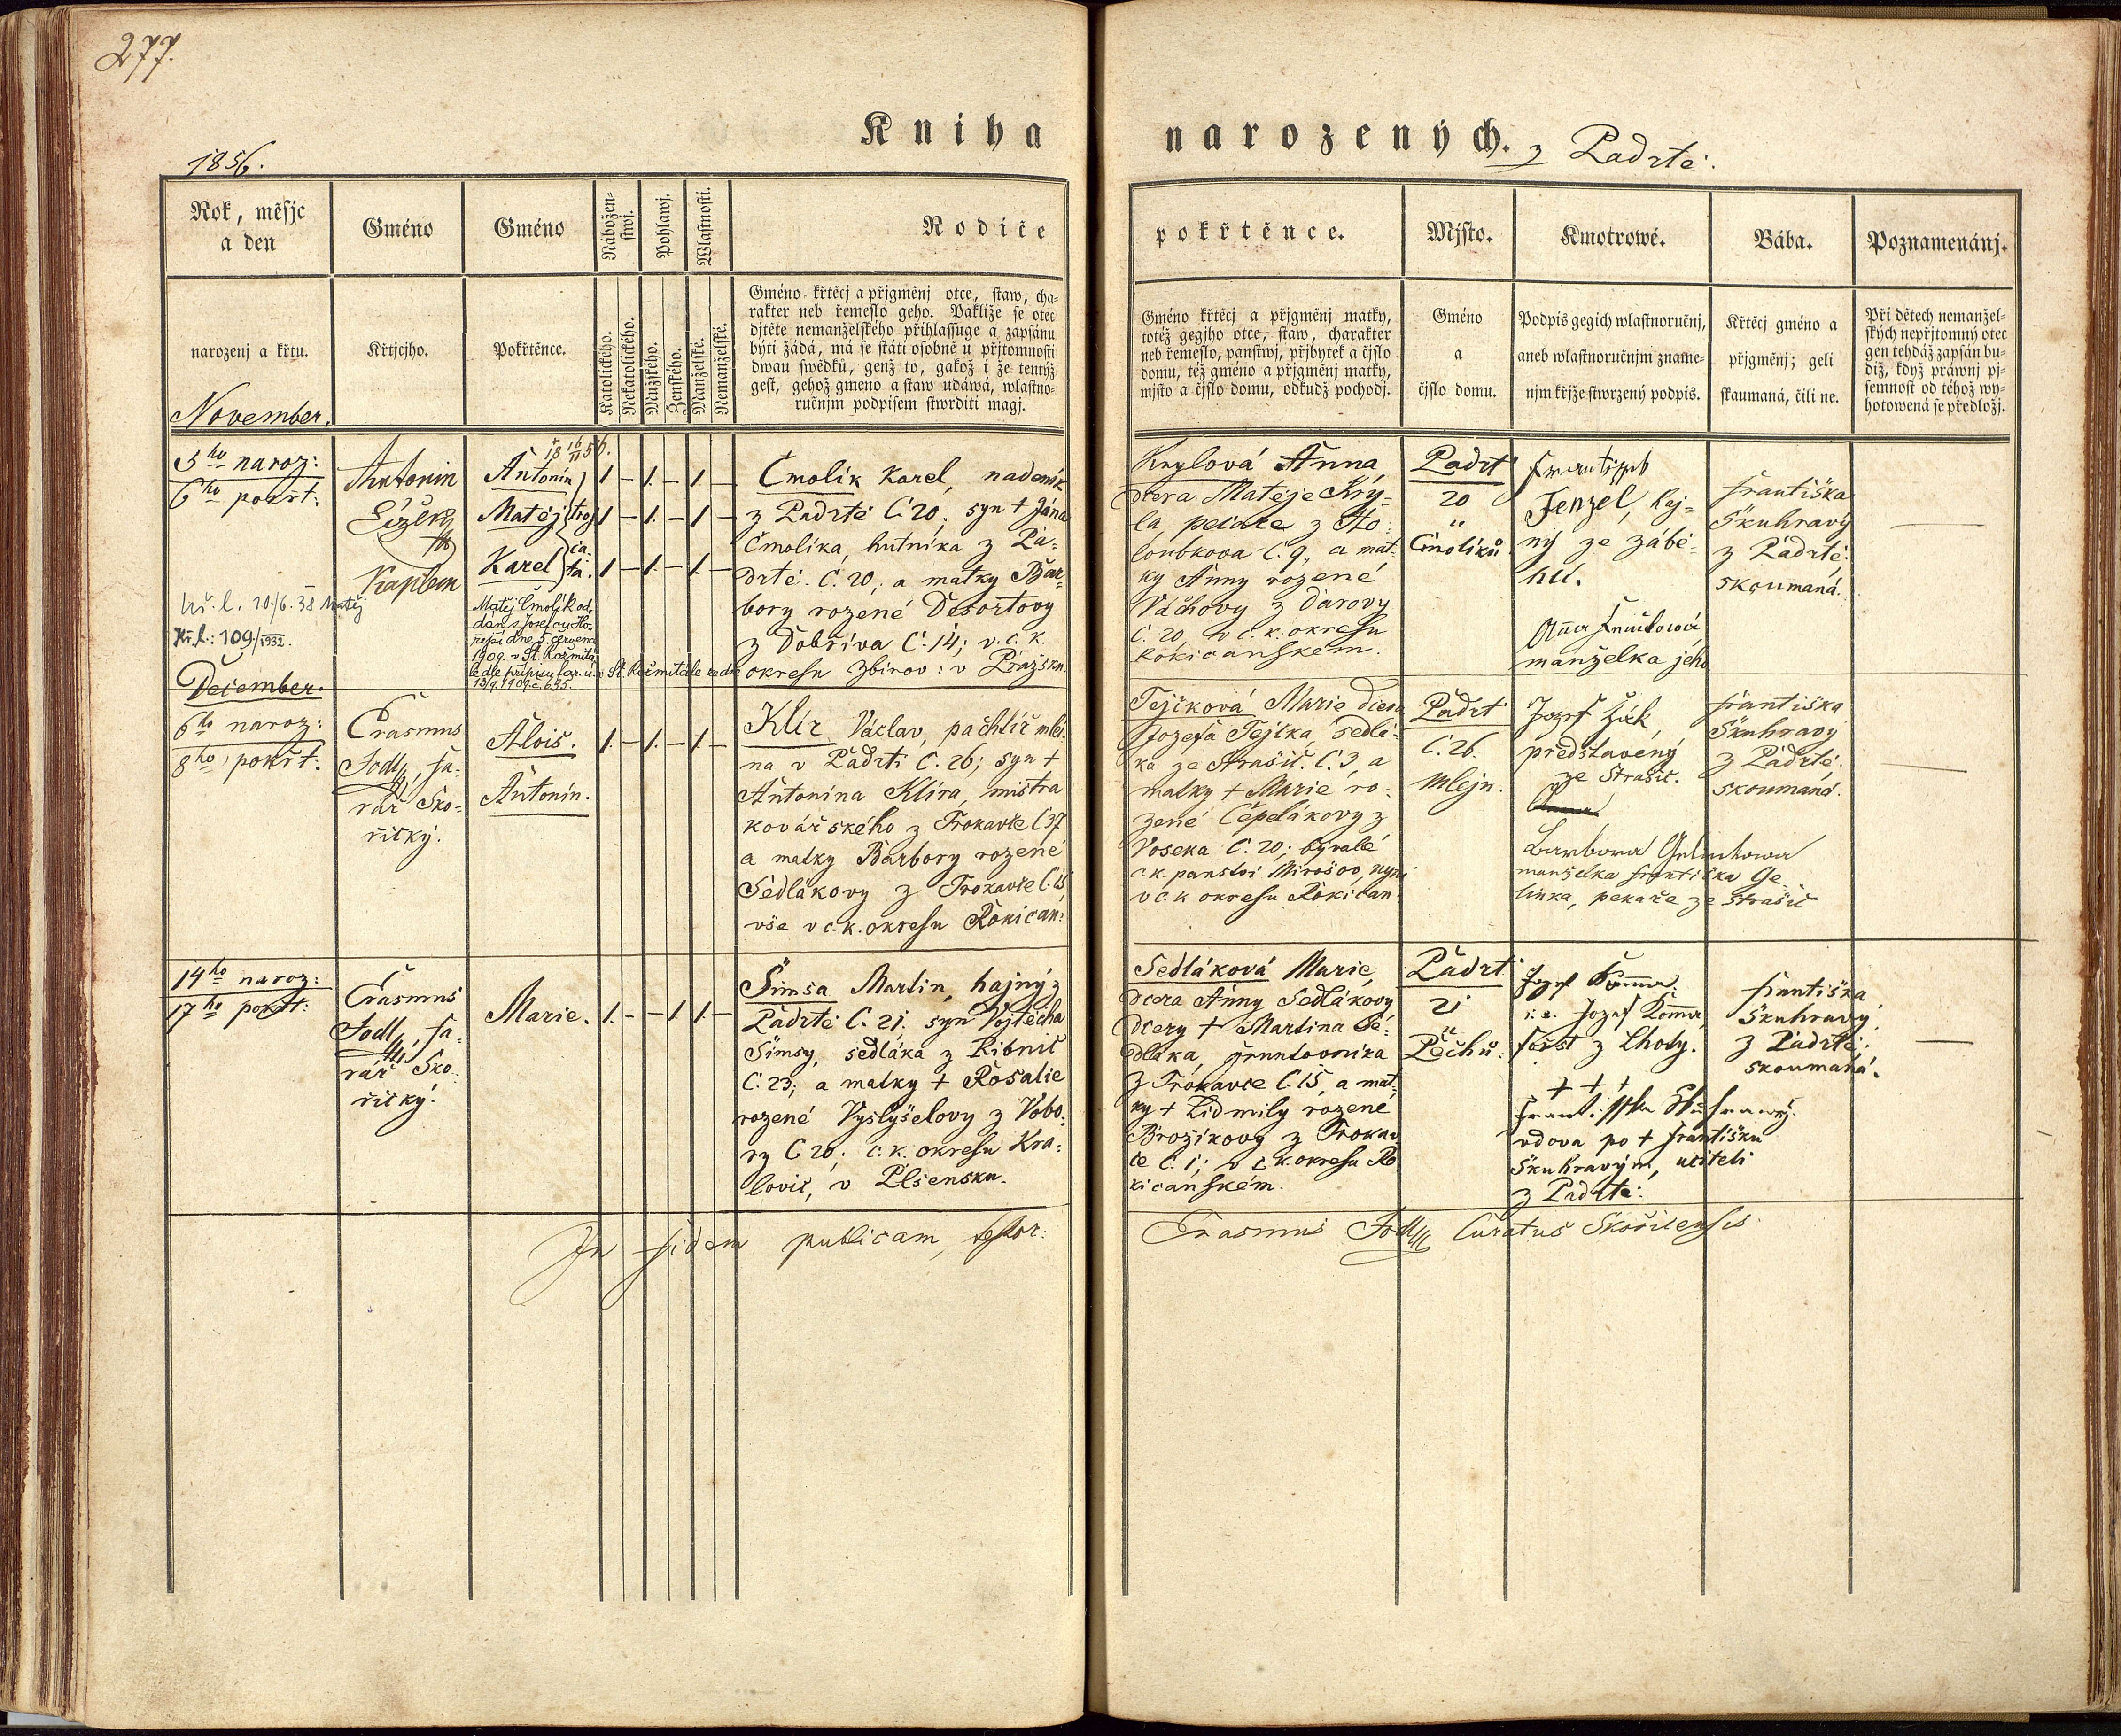 277.
Kniha narozených. z Padrtě.
1856.
Rok, měsjc
a den
narozenj a křtu.
November.
Gméno
Křtjcjho.
Gméno
Pokřtěnce.
Náboženstwj.
Katolického.
Nekatolického.
Pohlawj.
Mužského.
Ženského.
Wlastnosti.
Manželské.
Nemanželské.
Rodiče
Gméno křtěcj a přjgměnj otce, staw, cha-
rakter neb řemeslo geho. Pakliže se otec
djtěte nemanželského přihlassuge a zapsánu
býti žádá, má se státi osobně u přjtomnosti
dwau swědků, genž to, gakož i že tentýž
gest, gehož gmeno a staw udáwá, wlastno-
ručnjm podpisem stwrditi magj.
pokřtěnce.
Gméno křtěcj a přjgměnj matky,
totéž gegjho otce, staw, charakter
neb řemeslo, panstwj, přjbytek a čjslo
domu, též gméno a přjgměnj matky,
mjsto a čjslo domu, odkudž pochodj.
Mjsto.
Gméno
a
čjslo domu.
Kmotrowé.
Podpis gegich wlastnoručnj,
aneb wlastnoručnjm zname-
njm křjže stwrzený podpis.
Bába.
Křtěcj gméno a
přjgměnj; geli
skaumaná, čili ne.
Poznamenánj.
Při dětech nemanžel-
ských nepřjtomný otec
gen tehdáž zapsán bu-
diž, když práwnj pj-
semnost od téhož wy-
hotowená se předložj.
5ho naroz:
6ho pokřt:
Antonin
Kaplan
Antonín
Matěj
Karel
troj
ča-
ta.
Matěj Čmolík od-
dán s Josefou Ho-
dne 5. července
1909 v St. Rožmitá-
le dle přípisu far. ú. v St. Rožmitále ze dne
13/9 1909 č. 635.
10/6. 38 Matěj
Kř.l.: 109/1932.
1 – 1. – 1 –
1 – 1. – 1 –
1 – 1. – 1 –
Čmolík Karel, nádeník
z Padrtě Č. 20. syn † Jána
Čmolíka, hutníka z Pa-
drtě. Č. 20, a matky Bar-
bory rozené Desortovy
z Dobříva Č. 14; v c. k.
okresu Zbirov: v Pražsku.
Krylová Anna,
dcera Matěje Kry-
la, pekaře z Ho-
loubkova č. 9, a mat-
ky Anny rozené
Váchovy z Darovy
Č. 20, v c. k. okresu
Rokicanském.
Padrť
20
"
Čmolíků
František
Fenzel, haj-
ný ze Zábě-
hlí.
Anna
manželka jeho
Františka
Skuhravý
z Padrtě:
skoumaná.
December.
6ho naroz:
8ho pokřt:
Erasmus
Jodl, fa-
rář Sko-
řický.
Alois.
Antonín.
1. – 1. – 1 –
Klír Václav, pachtíř mlé-
na v Padrti Č. 26; syn †
Antonína Klíra, mistra
kovářského z Trokavce č 37
a matky Barbory rozené
Sedlákovy z Trokavce č. 15,
vše v c. k. okresu Rokican:
Tejčková Marie dcera
Jozefa Tejčka, sedlá-
ka ze Strašic. č. 3, a
matky † Marie ro-
zené Čepelákovy z
Voseka č. 20; bývalé
c. k. panství Mirošov, nyní
v c. k okresu Rokican:
Padrť
č. 26.
Mlejn.
Jozef Žák,
představený
ze Strašic.
Barbora Gelinkowa
manželka Františka Ge-
linka, pekaře ze Strašic
Františka
Skuhravý
z Padrtě;
skoumaná.
14ho naroz:
17ho pokřt:
Erasmus
Jodl, fa-
rář Sko-
řický.
Marie.
1. – – 1 1. –
Šimsa Martin, hajný z
Padrtě č. 21. syn Vojtěcha
Šimsy, sedláka z Ribnic
Č. 23; a matky † Rosalie
rozené Vyslyšelovy z Vobo-
ry č 20; c. k. okresu Kra-
lovic, v Plsensku.
Sedláková Marie,
dcera Anny Sedlákovy
dcery † Martina Se-
dláka, gruntovníka
z Trokavce č. 15, a mat-
ky † Lidmily rozené
Brožíkovy z Trokav-
ce č. 1; v c. k. okresu Ro-
kicanském.
Padrť
21
"
Pěchů.
Jozef Komma
i. e. Jozef Komma,
foršt z Lhoty.
+ + +
Františka Skuhrawý.
vdova po † Františku
Skuhravým, učiteli
z Padrtě.
Františka
Skuhravý,
z Padrtě;
skoumaná.
In fidem publicam, testor: Erasmus Jodl, Curatus Skořicensis.